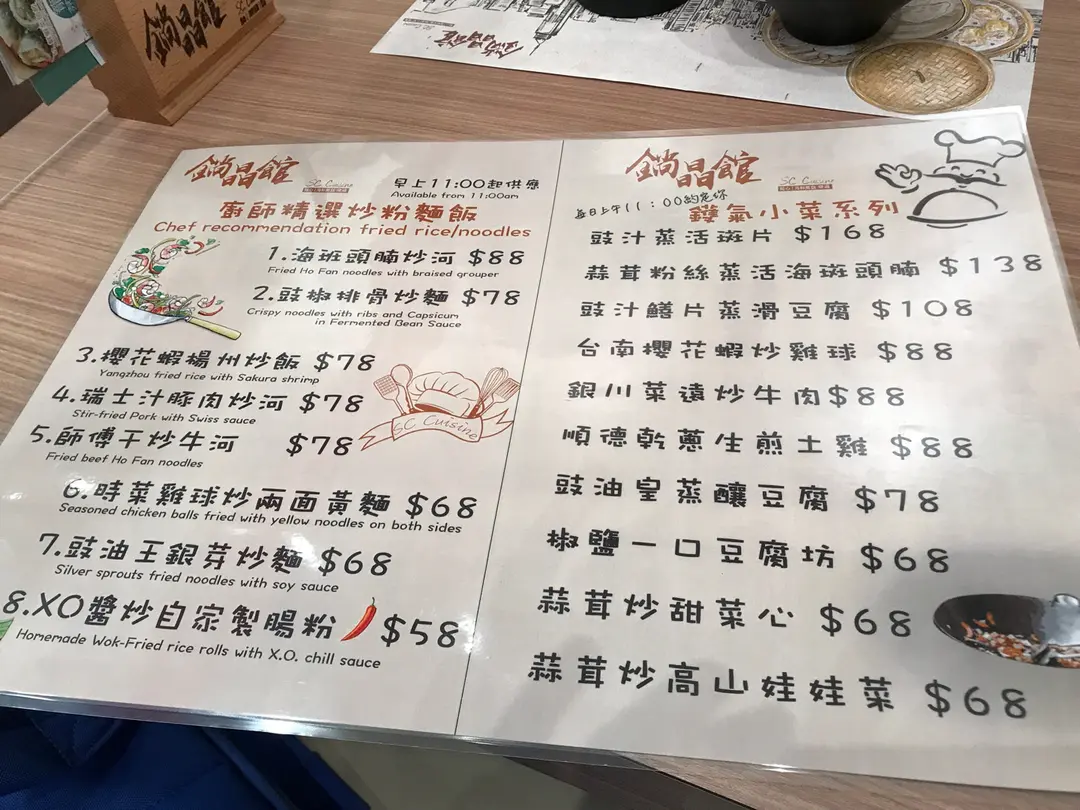 鎬晶館
鎬晶館
SC Cuisine
早上11:00起供應
Available from 11:00am
廚師精選炒粉麵飯
Chef recommendation fried rice/noodles
1.海班頭腩炒河 $88
Fried Ho Fan noodles with braised grouper
2.豉椒排骨炒麵 $78
Crispy noodles with ribs and Capsicum
in Fermented Bean Sauce
3.櫻花蝦揚州炒飯 $78
Yangzhou fried rice with Sakura shrimp
4.瑞士汁豚肉炒河 $78
Stir-fried Pork with Swiss sauce
5.師傅干炒牛河 $78
Fried beef Ho Fan noodles
SC Cuisine
6.時菜雞球炒兩面黃麵 $68
Seasoned chicken balls fried with yellow noodles on both sides
7.豉油王銀芽炒麵 $68
Silver sprouts fried noodles with soy sauce
8.XO醬炒自家製腸粉 $58
Homemade Wok-Fried rice rolls with X.O. chill sauce
鎬晶館
SC Cuisine
每日上午11:00約定你
鑊氣小菜系列
豉汁蒸活斑片 $168
蒜茸粉絲蒸活海斑頭腩 $138
豉汁鱔片蒸滑豆腐 $108
台南櫻花蝦炒雞球 $88
銀川菜遠炒牛肉$88
順德乾蔥生煎土雞 $88
豉油皇蒸釀豆腐 $78
椒鹽一口豆腐坊 $68
蒜茸炒甜菜心 $68
蒜茸炒高山娃娃菜 $68